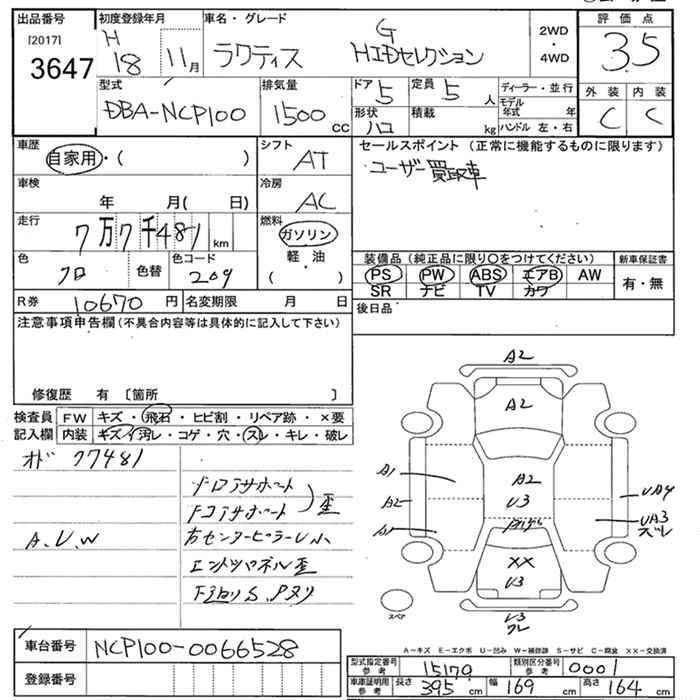 出品番号 初度登録年月 車名・グレード 評価点
[2017] H G 2WD
3647 18 11月 ラクティス HIDセレクション 4WD 3.5
型式 排気量 ドア 5 定員 5 人 ディーラー・並行 外装 内装
DBA-NCP100 1500 cc 形状 ハコ 積載 kg モデル年式 年 C C
ハンドル 左・右
車歴 自家用・( ) シフト AT セールスポイント (正常に機能するものに限ります)
ユーザー買取車
車検 年 月( 日) 冷房 AC
走行 7万7千481 km 燃料 ガソリン
軽・油
( )
色 クロ 色替 色コード 209
装備品 (純正品に限り○をつけてください) 新車保証書
PS PW ABS エアB AW 有・無
SR ナビ TV カワ
R券 10670 円 名変期限 月 日 後日品
注意事項申告欄(不具合内容等は具体的に記入して下さい)
修復歴 有 [箇所 ]
検査員 FW キズ・飛石・ヒビ割・リペア跡・×要
記入欄 内装 キズ・汚レ・コゲ・穴・スレ・キレ・破レ
オド 77481
ドロアサポート
ドコアサポート 歪
A.U.W 右センターピラーU小
エンドパネル歪
下廻りS.Pヌリ
A2
A2
A1 A2
U3
A2 UA4
UA3
ズレ
XX
U3
スペア
U3
ワレ
車台番号 NCP100-0066528
登録番号
A-キズ E-エクボ U-凹み W-補修跡 S-サビ C-腐食 XX-交換済
型式指定番号 参考 15170 類別区分番号 参考 0001
車庫証明用 参考 長さ 395 cm 幅 169 cm 高さ 164 cm